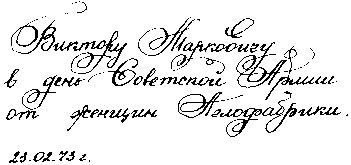 Виктору Марковичу
в день Советской Армии
от женщин Аглофабрики.
23.02.73 г.